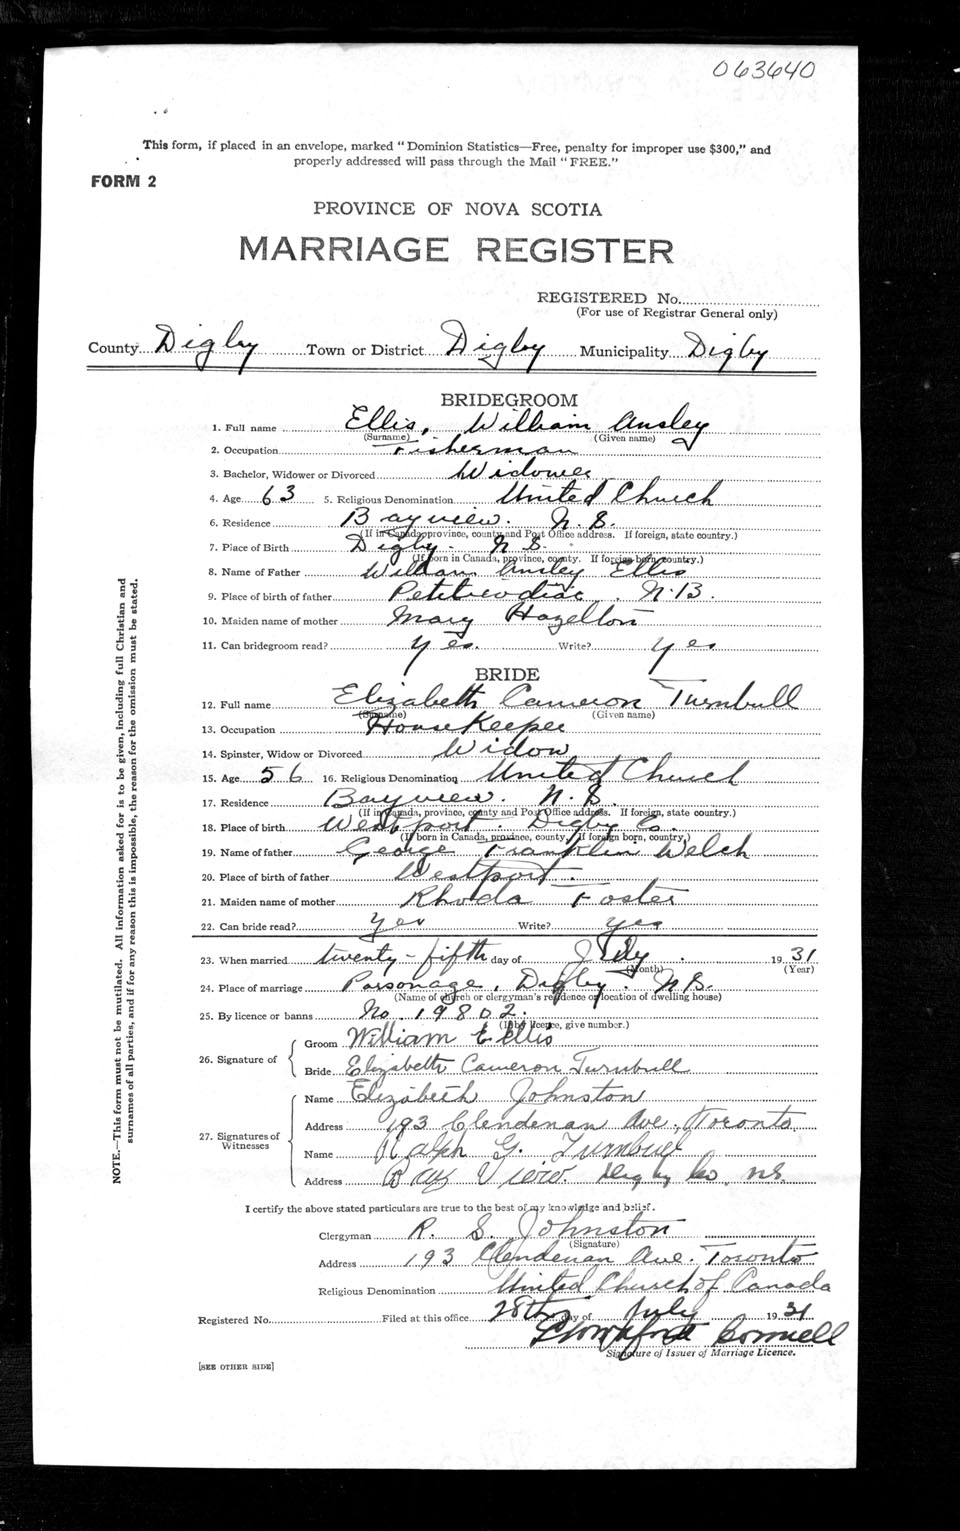 063640
This form, if placed in an envelope, marked "Dominion Statistics—Free, penalty for improper use $300," and
properly addressed will pass through the Mail "FREE."
FORM 2
PROVINCE OF NOVA SCOTIA
MARRIAGE REGISTER
REGISTERED No.
(For use of Registrar General only)
County Digby Town or District Digby Municipality Digby
BRIDEGROOM
1. Full name Ellis, William Ansley
(Surname) (Given name)
2. Occupation Fisherman
3. Bachelor, Widower or Divorced Widower
4. Age 63 5. Religious Denomination United Church
6. Residence Bayview. N.S.
(If in Canada, province, county and Post Office address. If foreign, state country.)
7. Place of Birth Digby. N.S.
(If born in Canada, province, county. If foreign born, country.)
8. Name of Father William Ansley Ellis
9. Place of birth of father Petitcodiac. N.B.
10. Maiden name of mother Mary Hazelton
11. Can bridegroom read? Yes. Write? Yes
BRIDE
12. Full name Elizabeth Cameron Turnbull
(Surname) (Given name)
13. Occupation HouseKeeper
14. Spinster, Widow or Divorced Widow
15. Age 56 16. Religious Denomination United Church
17. Residence Bayview. N.S.
(If in Canada, province, county and Post Office address. If foreign, state country.)
18. Place of birth Westport. Digby Co.
(If born in Canada, province, county. If foreign born, country.)
19. Name of father George Franklin Welch
20. Place of birth of father Westport.
21. Maiden name of mother Rhoda Foster
22. Can bride read? Yes Write? Yes
23. When married twenty-fifth day of July 1931
(Month) (Year)
24. Place of marriage Parsonage, Digby. N.S.
(Name of church or clergyman's residence or location of dwelling house)
25. By licence or banns No. 19802.
(If by licence, give number.)
26. Signature of
Groom William E Ellis
Bride Elizabeth Cameron Turnbull
27. Signatures of Witnesses
Name Elizabeth Johnston
Address 193 Clendenan Ave., Toronto
Name Ralph G. Turnbull
Address Bay View. Digby Co, NS.
I certify the above stated particulars are true to the best of my knowledge and belief.
Clergyman R. S. Johnston
(Signature)
Address 193 Clendenan Ave. Toronto
Religious Denomination United Church of Canada
Registered No. Filed at this office 28th day of July 1931
Signature of Issuer of Marriage Licence.
[SEE OTHER SIDE]
NOTE.—This form must not be mutilated. All information asked for is to be given, including full Christian and
surnames of all parties, and if for any reason this is impossible, the reason for the omission must be stated.